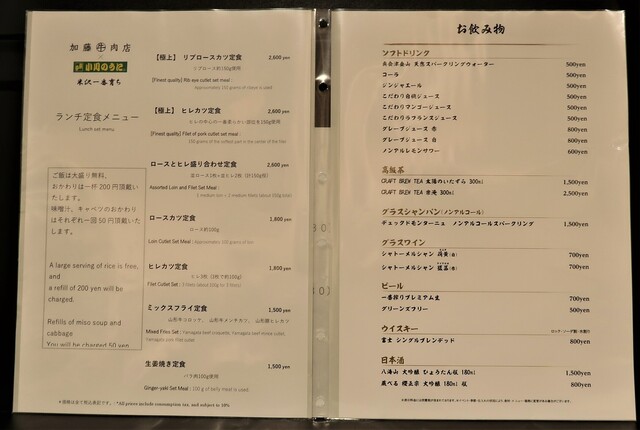 加藤牛肉店
×
小川のうに
米沢一番育ち
ランチ定食メニュー
Lunch set menu
ご飯は大盛り無料、
おかわりは一杯 200 円頂戴い
たします。
味噌汁、キャベツのおかわり
はそれぞれ一回 50 円頂戴いた
します。
A large serving of rice is free,
and
a refill of 200 yen will be
charged.
Refills of miso soup and
cabbage
You will be charged 50 yen
【極上】 リブロースカツ定食 2,600 yen
リブロース約150g使用
[Finest quality] Rib eye cutlet set meal :
Approximately 150 grams of ribeye is used
【極上】 ヒレカツ定食 2,600 yen
ヒレの中心の一番柔らかい部位を150g使用
[Finest quality] Filet of pork cutlet set meal :
150 grams of the softest part in the center of the filet
ロースとヒレ盛り合わせ定食 2,600 yen
Assorted Loin and Filet Set Meal :
ロースカツ定食 1,800 yen
ロース約100g
Loin Cutlet Set Meal : Approximately 100 grams of loin
ヒレカツ定食 1,800 yen
Filet Cutlet Set :
ミックスフライ定食 1,500 yen
山形牛コロッケ、 山形牛メンチカツ、 山形豚ヒレカツ
Mixed Fries Set : Yamagata beef croquette, Yamagata beef mince cutlet,
生姜焼き定食 1,500 yen
バラ肉100g使用
Ginger-yaki Set Meal : 100 g of belly meat is used
*All prices include consumption tax, and subject to 10%
お飲み物
ソフトドリンク
天然スパークリングウォーター 500yen
コーラ 500yen
ジンジャエール 500yen
こだわり白桃ジュース 500yen
こだわりマンゴージュース 500yen
こだわりラフランスジュース 500yen
グレープジュース 赤 800yen
グレープジュース 白 800yen
ノンアルレモンサワー 600yen
高級茶
CRAFT BREW TEA 太陽のいたずら 300ml 1,500yen
CRAFT BREW TEA 300ml 2,500yen
グラスシャンパン(ノンアルコール)
デュックドモンターニュ ノンアルコールスパークリング 1,500yen
グラスワイン
シャトーメルシャン 700yen
シャトーメルシャン 700yen
ビール
一番搾りプレミアム生 700yen
グリーンズフリー 500yen
ウイスキー
ロック・ソーダ割・水割り
富士 シングルブレンデッド 800yen
日本酒
八海山 大吟醸 ひょうたん 180ml 1,500yen
大吟醸 180ml 800yen